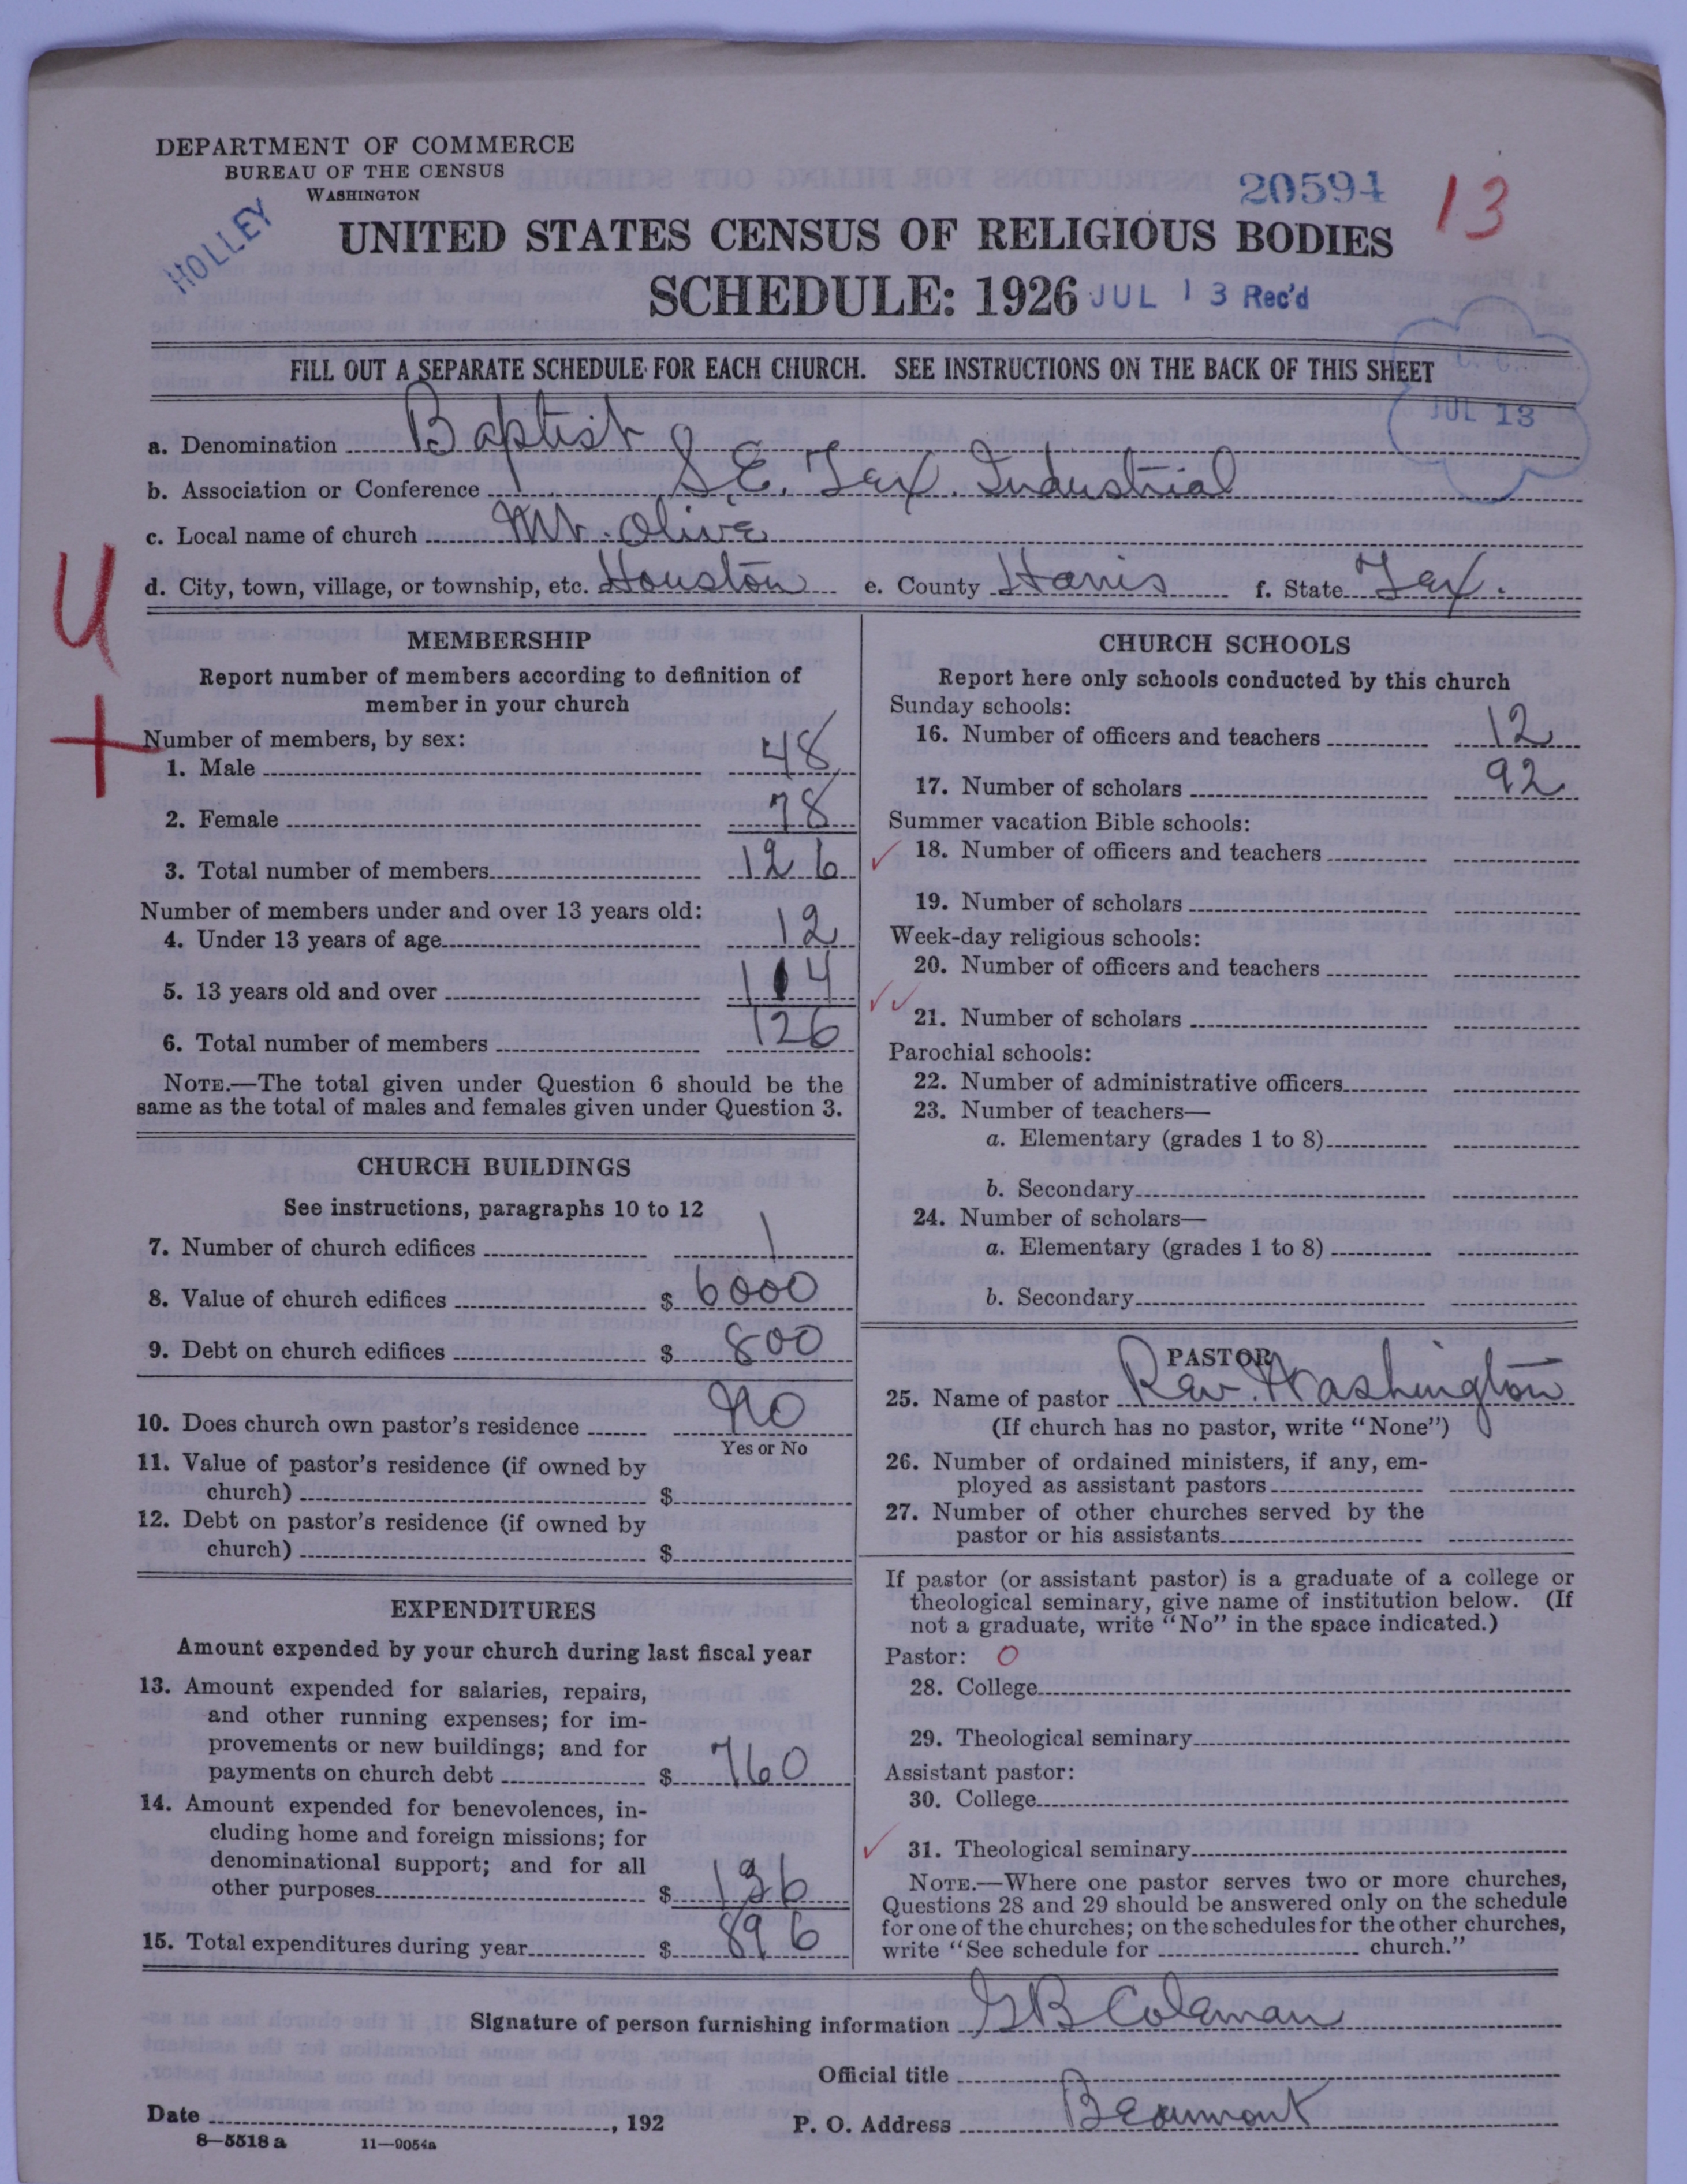 DEPARTMENT OF COMMERCE
BUREAU OF THE CENSUS
WASHINGTON
HOLLEY
20594 13
UNITED STATES CENSUS OF RELIGIOUS BODIES
SCHEDULE: 1926 JUL 13 Rec'd
FILL OUT A SEPARATE SCHEDULE FOR EACH CHURCH. SEE INSTRUCTIONS ON THE BACK OF THIS SHEET
JUL 13
a. Denomination Baptist
b. Association or Conference S.E. Tex. Industrial
c. Local name of church Mt. Olive
d. City, town, village, or township, etc. Houston e. County Harris f. State Tex.
U
+
MEMBERSHIP
Report number of members according to definition of
member in your church
Number of members, by sex:
1. Male 48
2. Female 78
3. Total number of members 126
Number of members under and over 13 years old:
4. Under 13 years of age 12
5. 13 years old and over 114
6. Total number of members 126
NOTE.—The total given under Question 6 should be the
same as the total of males and females given under Question 3.
CHURCH BUILDINGS
See instructions, paragraphs 10 to 12
7. Number of church edifices 1
8. Value of church edifices $ 6000
9. Debt on church edifices $ 800
10. Does church own pastor's residence No
Yes or No
11. Value of pastor's residence (if owned by
church) $
12. Debt on pastor's residence (if owned by
church) $
EXPENDITURES
Amount expended by your church during last fiscal year
13. Amount expended for salaries, repairs,
and other running expenses; for im-
provements or new buildings; and for
payments on church debt $ 760
14. Amount expended for benevolences, in-
cluding home and foreign missions; for
denominational support; and for all
other purposes $ 136
15. Total expenditures during year $ 896
CHURCH SCHOOLS
Report here only schools conducted by this church
Sunday schools:
16. Number of officers and teachers 12
17. Number of scholars 92
Summer vacation Bible schools:
18. Number of officers and teachers
19. Number of scholars
Week-day religious schools:
20. Number of officers and teachers
21. Number of scholars
Parochial schools:
22. Number of administrative officers
23. Number of teachers—
a. Elementary (grades 1 to 8)
b. Secondary
24. Number of scholars—
a. Elementary (grades 1 to 8)
b. Secondary
PASTOR
25. Name of pastor Rev. Washington
(If church has no pastor, write "None")
26. Number of ordained ministers, if any, em-
ployed as assistant pastors
27. Number of other churches served by the
pastor or his assistants
If pastor (or assistant pastor) is a graduate of a college or
theological seminary, give name of institution below. (If
not a graduate, write "No" in the space indicated.)
Pastor: 0
28. College
29. Theological seminary
Assistant pastor:
30. College
31. Theological seminary
NOTE.—Where one pastor serves two or more churches,
Questions 28 and 29 should be answered only on the schedule
for one of the churches; on the schedules for the other churches,
write "See schedule for church."
Signature of person furnishing information GB Coleman
Official title
Date , 192 P. O. Address Beaumont
8—5518 a 11—9054a